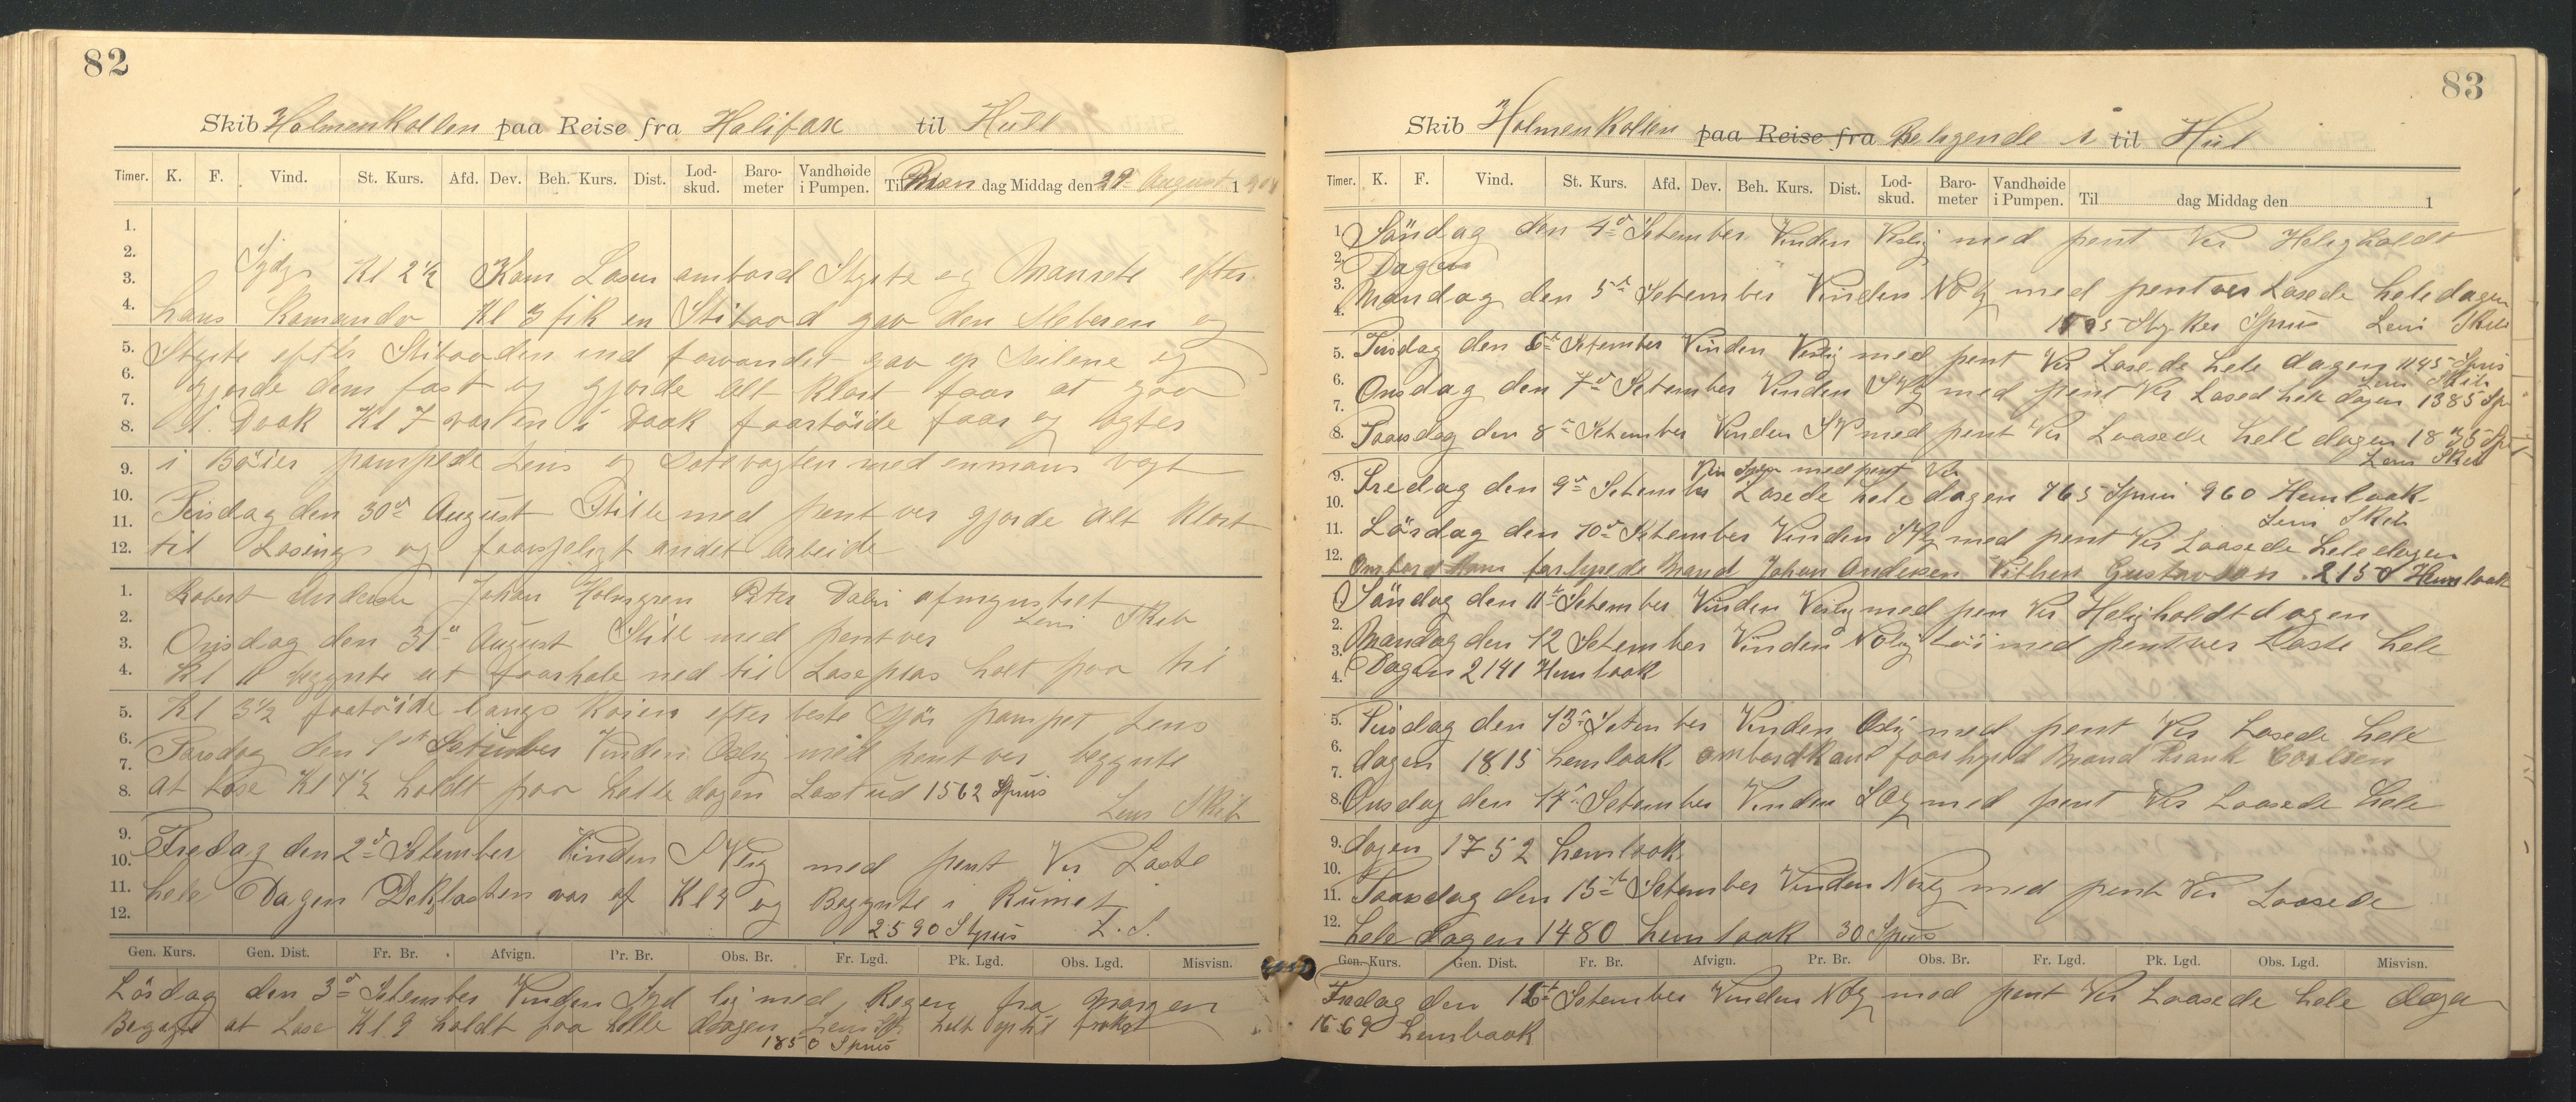 82
Skib Holmenkollen paa Reise fra Halifax til Hull
Timer. K. F. Vind. St. Kurs. Afd. Dev. Beh. Kurs. Dist. Lod-skud. Baro-meter Vandhøide i Pumpen. Til dag Middag den 29 August 1904
1.
2. Kl 2½ Kom Losen ombord Styrte og Manrete efter
3.
4. hans Komando Kl 3 fik en Stibaad gav den Sleberen og
5. Styrte efter Stibaaden ind farvandet gav op Seilene og
6. gjorde dem fast og gjorde alt klart faar at gaa
7.
8. i Doak Kl 7 var en i Doak faartöide faar og agter
9. i Böier pampede Lens og satte vagten med enmans vagt
10. Tirsdag den 30d August Stille med pent ver gjorde alt klart
11.
12. til Losing og faarsjeligt andet arbeide
1. Robert Andersen Johan Holmgren Peter Dalin afmynstret
2. Lens Skib
3. Onsdag den 31d August Stille med pent ver
4. Kl 11 begynte at faarhale ned til Loseplas holt paa til
5. Kl 3½ faatöide langs Kaien efter beste Sjöi pampet Lens
6. Torsdag den 1st Setember Vinden Oslig med pent ver begynte
7.
8. at Lose Kl 7½ holdt paa helle dagen Lost ud 1562 Spruis
Lens Skib
9. Fredag den 2d Setember Vinden S Vlig med pent Ver Loste
10.
11. hele Dagen Dekslasten var af Kl 4 og Begynte i Rumet
12. 2590 St Spruis L. S.
Gen. Kurs. Gen. Dist. Fr. Br. Afvign. Pr. Br. Obs. Br. Fr. Lgd. Pk. Lgd. Obs. Lgd. Misvisn.
Lördag den 3d Setember Vinden Syd lig med Regen fra Morgen
Begynte at Lose Kl 9 holdt paa helle dagen Lens Sk helt op til frokost
1850 Spruis
83
Skib Holmenkollen paa Reise fra Beligende i til Hul
Timer. K. F. Vind. St. Kurs. Afd. Dev. Beh. Kurs. Dist. Lod-skud. Baro-meter Vandhøide i Pumpen. Til dag Middag den 1
1. Söndag den 4d Setember Vinden Vslig med pent Ver Heligholdt
2. Dagen
3. Mandag den 5d Setember Vinden NOlg med pent ver Losede hele dagen
4. Stykker Spruis Lens Skib
5. Tirsdag den 6d Setember Vinden Veslig med pent Ver Losede hele dagen 1145 Spruis
Lens Skib
6. Onsdag den 7d Setember Vinden SVlg med pent Ver Losed hele dagen 1385 Sp
7.
8. Taarsdag den 8d Setember Vinden SV med pent Ver Loasede hele dagen Sp
Lens Skib
9. Vin Sylg med pent Ver
10. Fredag den 9d Setember Losede hele dagen 765 Spruis 960 Hemloak
Lens Skib
11. Lörsdag den 10d Setember Vinden SVlg med pent Ver Loasede hele dagen
12. Ombord Kom farhyrede Mand Johan Andersen Vilhem Gustavson 2150 Hemloak
1. Söndag den 11t Setember Vinden Veslig med pen Ver Heligholdt dagen
2.
3. Mandag den 12 Setember Vinden NOlig Löi med pent ver Loste hele
4. Dagen 2141 Hemloak
5. Tirsdag den 13d Setember Vinden Oslig med pent Ver Losede hele
6.
7. dagen 1815 hemloak ombord kom faarhyred Mand Frank Carlsen
8. Onsdag den 14d Setember Vinden SOlg med pent Ver Loasede hele
9. dagen 1752 hemloak
10.
11. Taarsdag den 15d Setember Vinden Nvlg med pent Ver Loasede
12. hele dagen 1480 hemloak 30 Spruis
Gen. Kurs. Gen. Dist. Fr. Br. Afvign. Pr. Br. Obs. Br. Fr. Lgd. Pk. Lgd. Obs. Lgd. Misvisn.
Fredag den 16d Setember Vinden NOlg med pent Ver Loasede hele dage
1569 hemloak